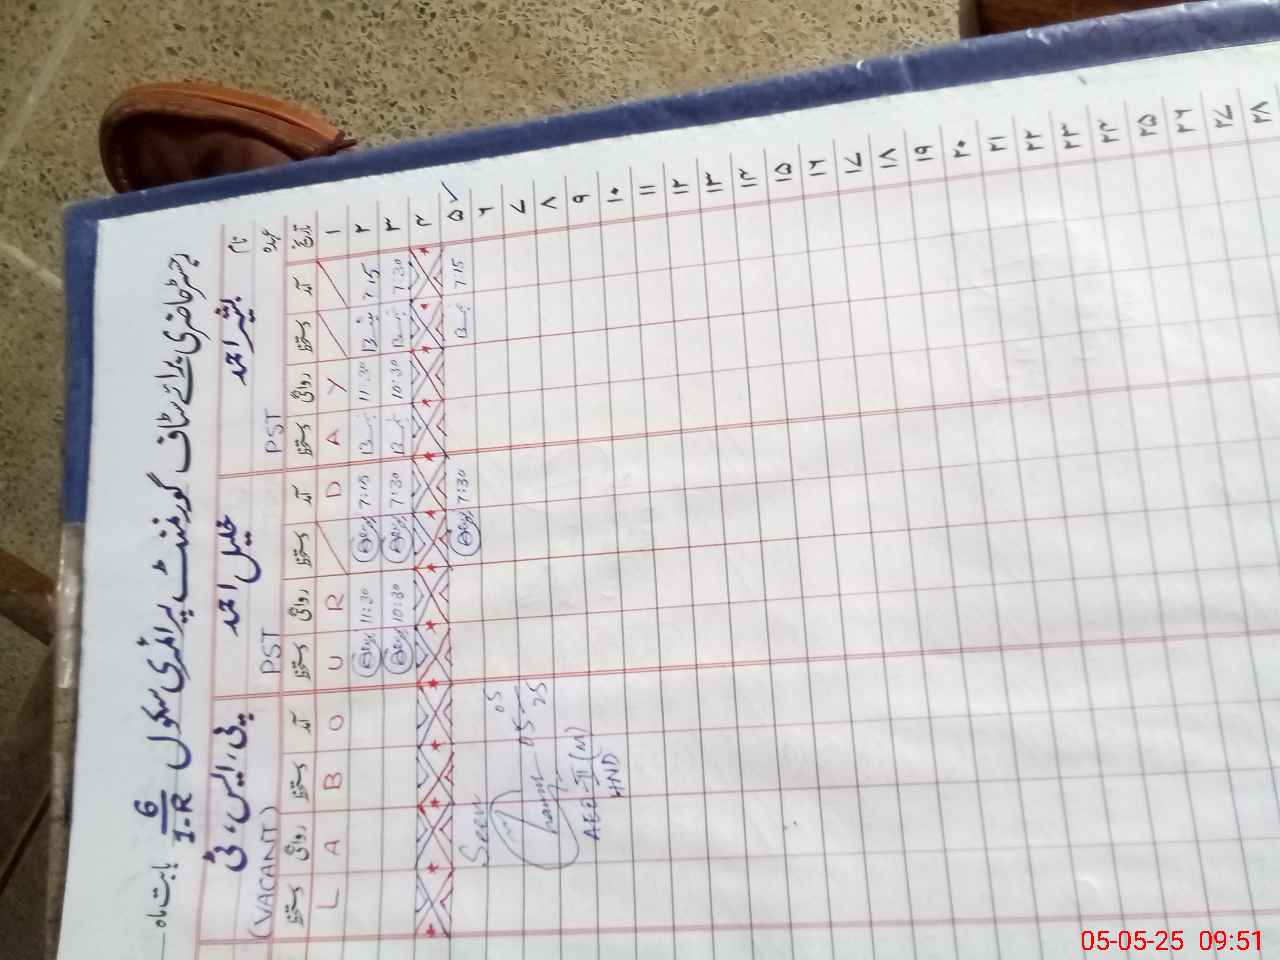 رجسٹر حاضری برائے سٹاف گورنمنٹ پرائمری سکول 6/1-R بابت ماہ
نام بشیر احمد خلیل احمد پی، ایس، ٹی
عہدہ PST PST (VACANT)
تاریخ آمد دستخط روانگی دستخط آمد دستخط روانگی دستخط آمد دستخط روانگی دستخط
۱ L A B O U R D A Y
۲ 7:15 11:30 7:15 11:30
۳ 7:30 10:30 7:30 10:30
۴
۵ ✓ 7:15 7:30
۶ Seen
۷ 05-05-25
۸
۹ AEE-II (M)
۱۰ HND
۱۱
۱۲
۱۳
۱۴
۱۵
۱۶
۱۷
۱۸
۱۹
۲۰
۲۱
۲۲
۲۳
۲۴
۲۵
۲۶
۲۷
۲۸
05-05-25 09:51